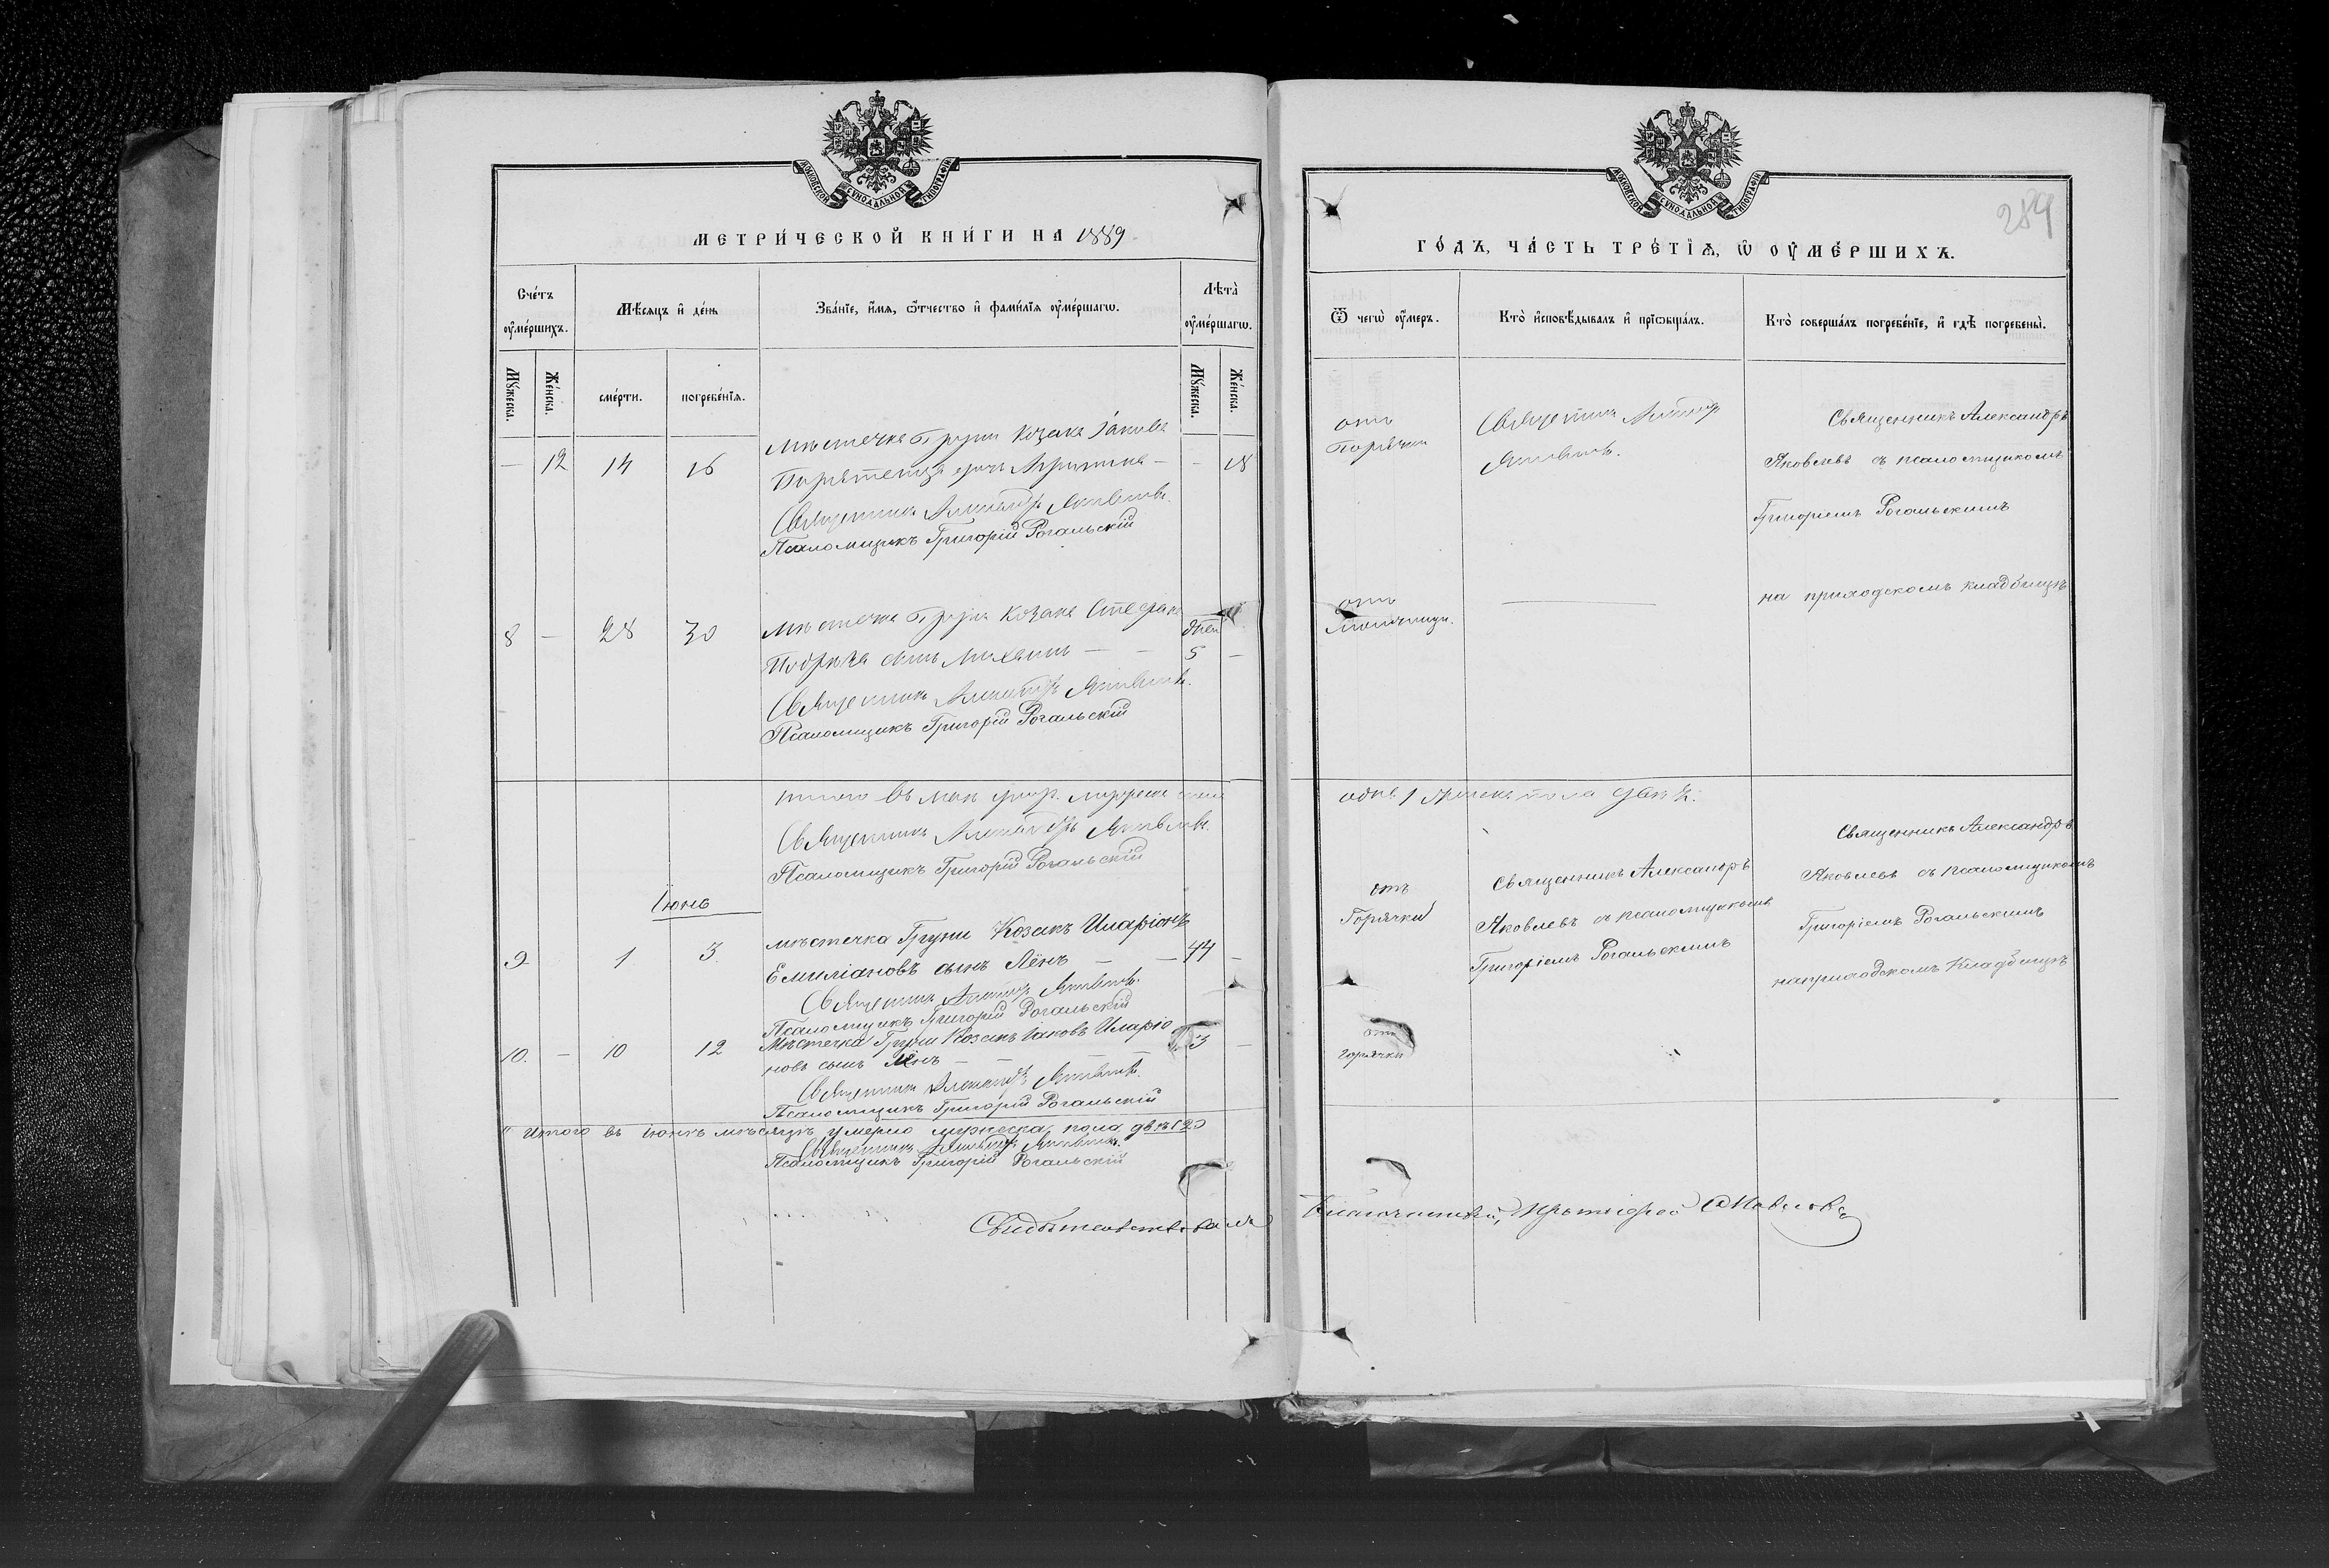 МОСКОВСКОЙ СУНОДАЛЬНОЙ ТИПОГРАФІИ
МЕТРИ́ЧЕСКОЙ КНИ́ГИ НА 1889
Сче́тъ ᲂу҆ме́ршихъ.
Мѣ́сяцъ и҆ де́нь
Зва́нїе, и҆́мя, ѻ҆́тчество и҆ фами́лїя ᲂу҆ме́ршагѡ.
Лѣта̀ ᲂу҆ме́ршагѡ.
Мꙋ́жеска.
Же́нска.
сме́рти.
погребе́нїя.
Мꙋ́жеска.
Же́нска.
мѣстечка Груни Козака Іакова
— 12 14 16 дочь — — 18
Священникъ Александръ Яковлевъ.
Псаломщикъ Григорій Рогальскій
мѣстечка Груни Козака Стефана
дней
8 — 28 30 сынъ Михаилъ — — 5 —
Священникъ Александръ Яковлевъ.
Псаломщикъ Григорій Рогальскій
итого въ маѣ мужеска пола
Священникъ Александръ Яковлевъ.
Псаломщикъ Григорій Рогальскій
Іюнь
мѣстечка Груни Козакъ Иларіонъ
9 1 3 Емиліановъ сынъ Лёнъ — — 44 —
Священникъ Александръ Яковлевъ.
Псаломщикъ Григорій Рогальскій
Мѣстечка Груни Козакъ Іаковъ Иларіо
10. — 10 12 новъ сынъ Лёнъ — — — 3 —
Священникъ Александръ Яковлевъ.
Псаломщикъ Григорій Рогальскій
Итого въ Іюнѣ мѣсяцѣ умерло мужеска пола два (2)
Священникъ Александръ Яковлевъ.
Псаломщикъ Григорій Рогальскій
Свидѣтельствовалъ
МОСКОВСКОЙ СУНОДАЛЬНОЙ ТИПОГРАФІИ
284
ГО́ДЪ, ЧА́СТЬ ТРЕ́ТЇѦ, Ѡ҆ ОУ҆МЕ́РШИХЪ.
Ѿ чегѡ̀ ᲂу҆́меръ.
Кто̀ и҆сповѣ́дывалъ и҆ прїѡбща́лъ.
Кто̀ соверша́лъ погребе́нїе, и҆ гдѣ̀ погребены̀.
отъ
Горячки
Священникъ Александръ
Яковлевъ.
Священникъ Александръ
Яковлевъ съ псаломщикомъ
Григоріемъ Рогальскимъ
на приходскомъ кладбищѣ
отъ
одна 1 женска пола двѣ 2.
отъ
Горячки
Священникъ Александръ
Яковлевъ съ псаломщикомъ
Григоріемъ Рогальскимъ
Священникъ Александръ
Яковлевъ съ псаломщикомъ
Григоріемъ Рогальскимъ
на приходскомъ Кладбищѣ
отъ
горячки
Благочинный, Протоіерей